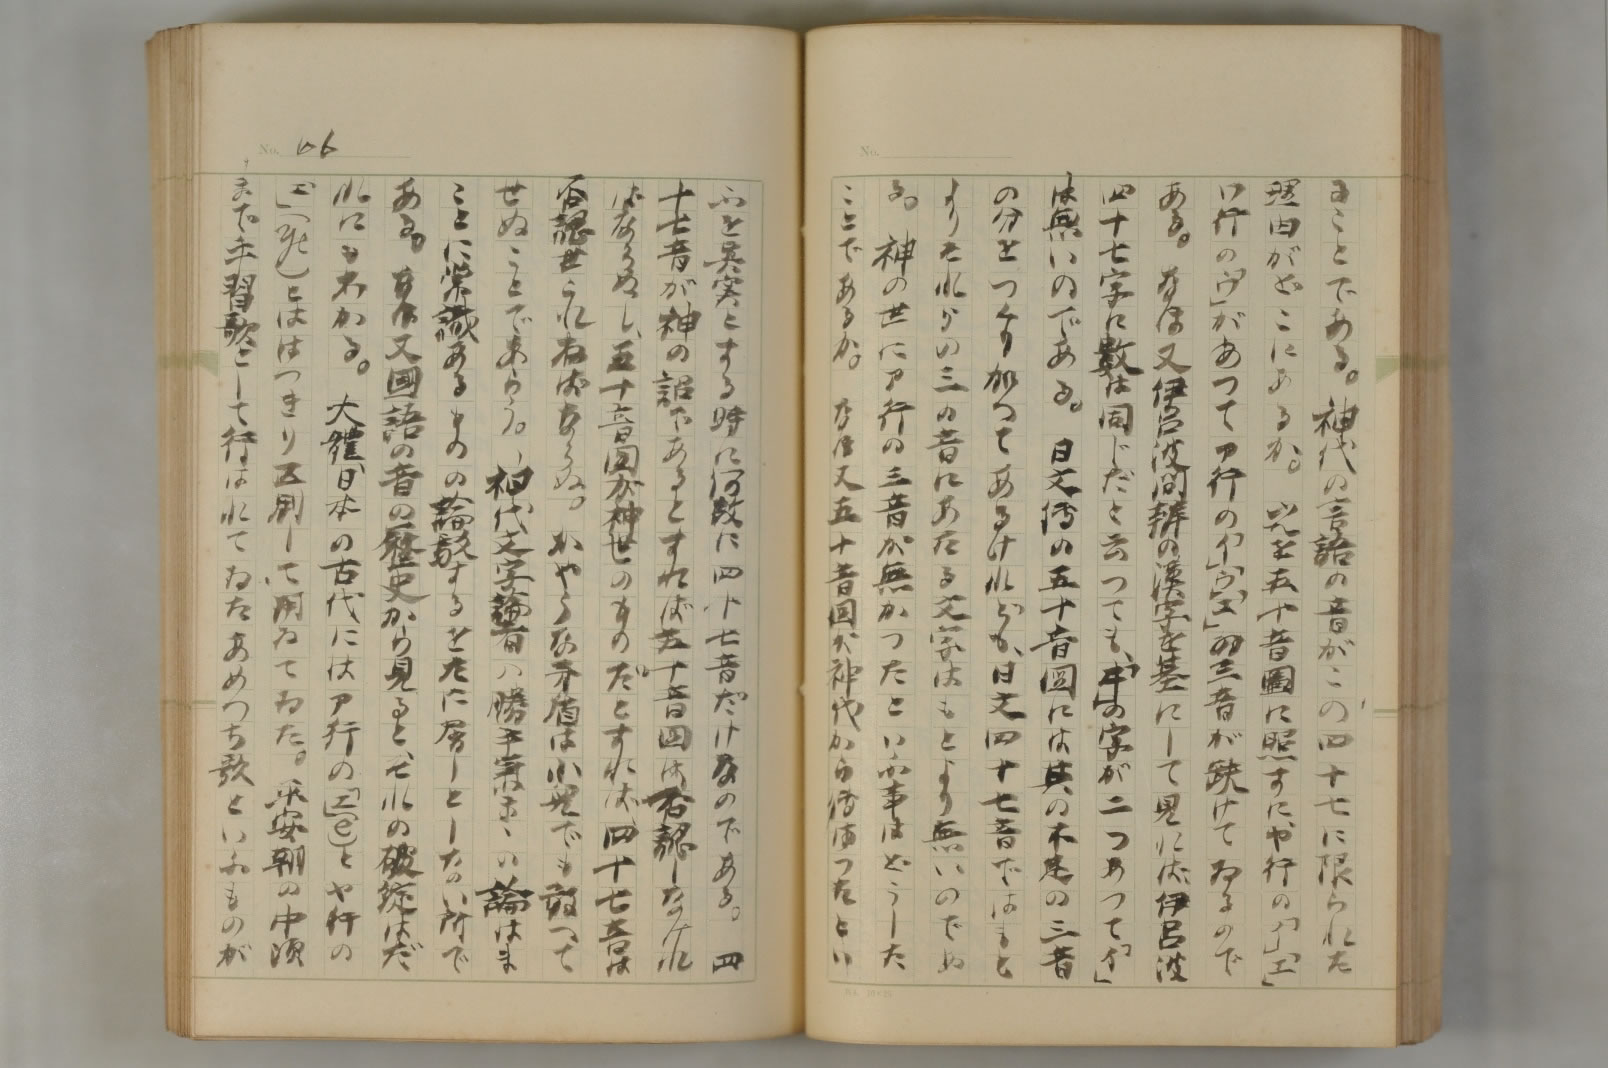 まことである。神代の言語の音がこの四十七に限られた
理由がどこにあるか。之を五十音圖に照すに、や行の「イ」「エ」
ワ行の「ウ」があつてア行の「イ」「ウ」「エ」の三音が缺けてゐるので
ある。なほ又伊呂波問辨の漢字を基にして見れば伊呂波
四十七字に數は同じだと云つても、「ヰ」の字が二つあつて「イ」
は無いのである。日文傳の五十音圖には其の不足の三音
の分をつくり加へてあるけれども、日文四十七音ではもと
よりそれらの三の音にあたる文字はもとより無いのであ
る。神の世にア行の三音が無かつたといふ事はどうした
ことであるか。なほ又五十音図が神代から傳はつたとい
No. 106
ふを真実とする時に何故に四十七音だけなのである。四
十七音が神の詔であるとすれば五十音図は否認しなけれ
ばならぬし、五十音図が神世のものだとすれば四十七音は
否認せられねばならぬ。かやうな矛盾は小児でも敢へて
せぬことであらう。神代文字論者の勝手気まゝの論はま
ことに常識あるものの論議するをだに屑しとしない所で
ある。なほ又國語の音の歴史から見ると、それの破綻はだ
れにもわかる。大體日本の古代にはア行の「エ」(e)とヤ行の
「エ」(ye)とははつきり区別して用ゐてゐた。平安朝の中頃
まで手習歌として行はれてゐたあめつち歌といふものが